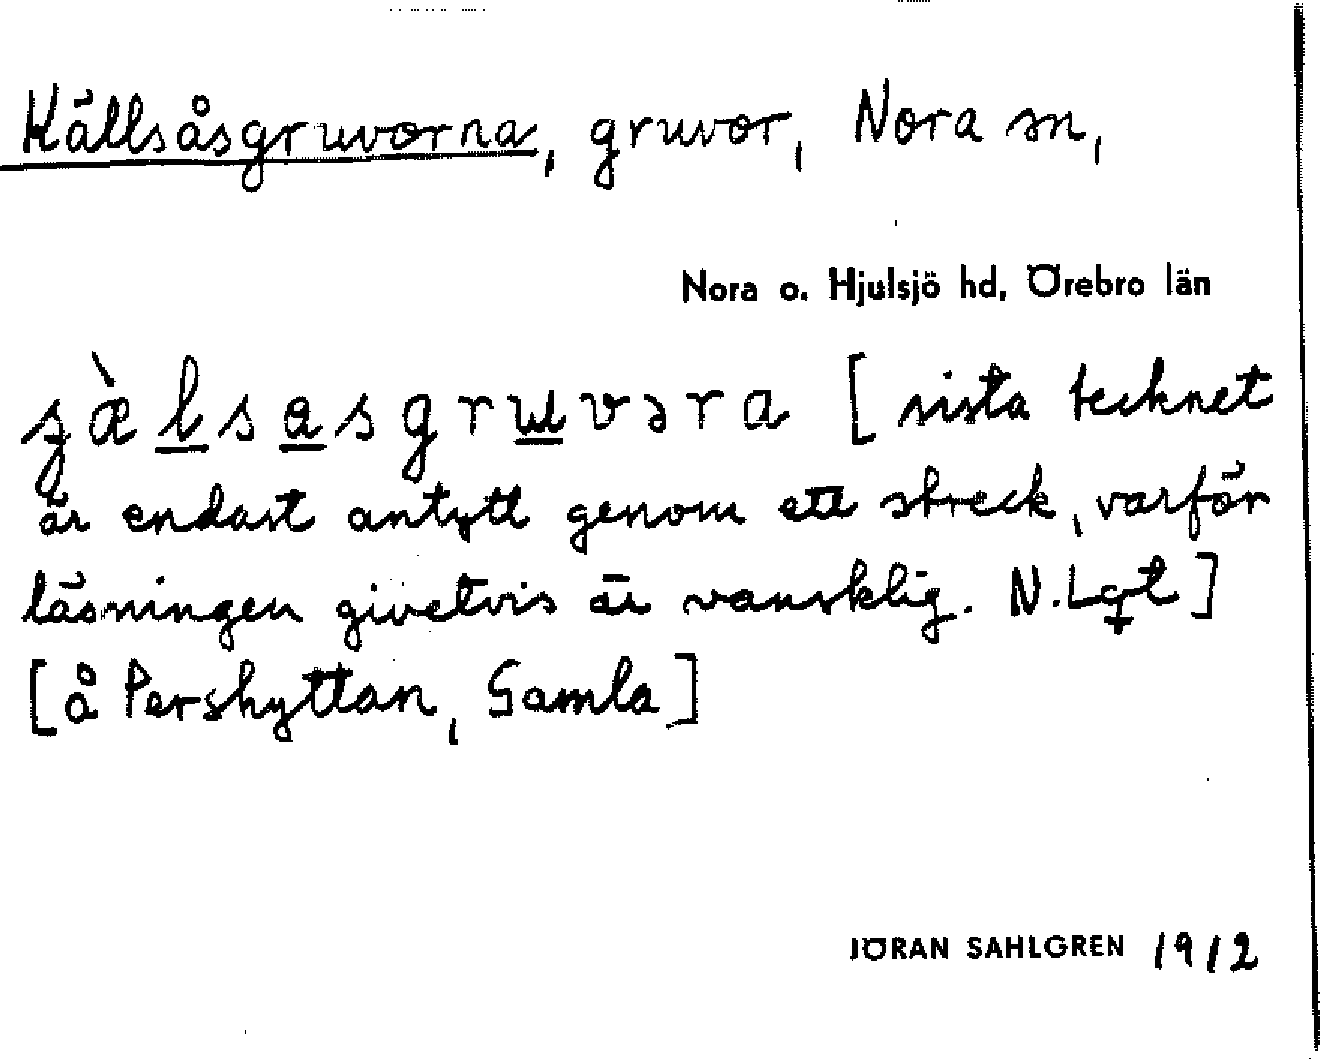 Källsåsgruvorna, gruvor, Nora sn,
Nora o. Hjulsjö hd, Örebro län
[sista tecknet
är endast antytt genom ett streck, varför
läsningen givetvis är vansklig. N. Lgt]
[å Pershyttan, Gamla]
JÖRAN SAHLGREN 1912